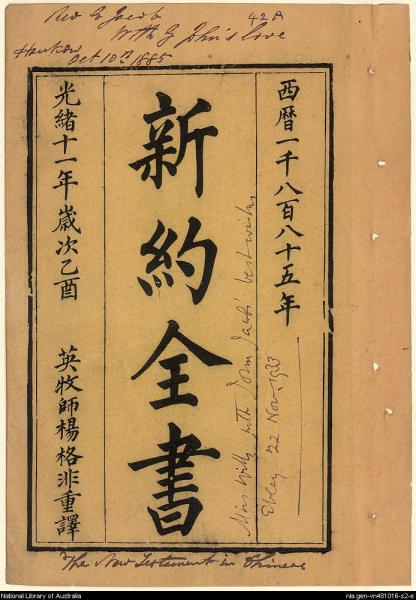 Rev E Jacob
42A
With G John's love
Hankow
Oct 10th 1885
西曆一千八百八十五年
新約全書
光緒十一年歲次乙酉 英牧師楊格非重譯
Miss Willy with John Jacobs' best wishes
Ebley 22 Nov. 1933
The New Testament in Chinese
National Library of Australia
nla.gen-vn481016-s2-e